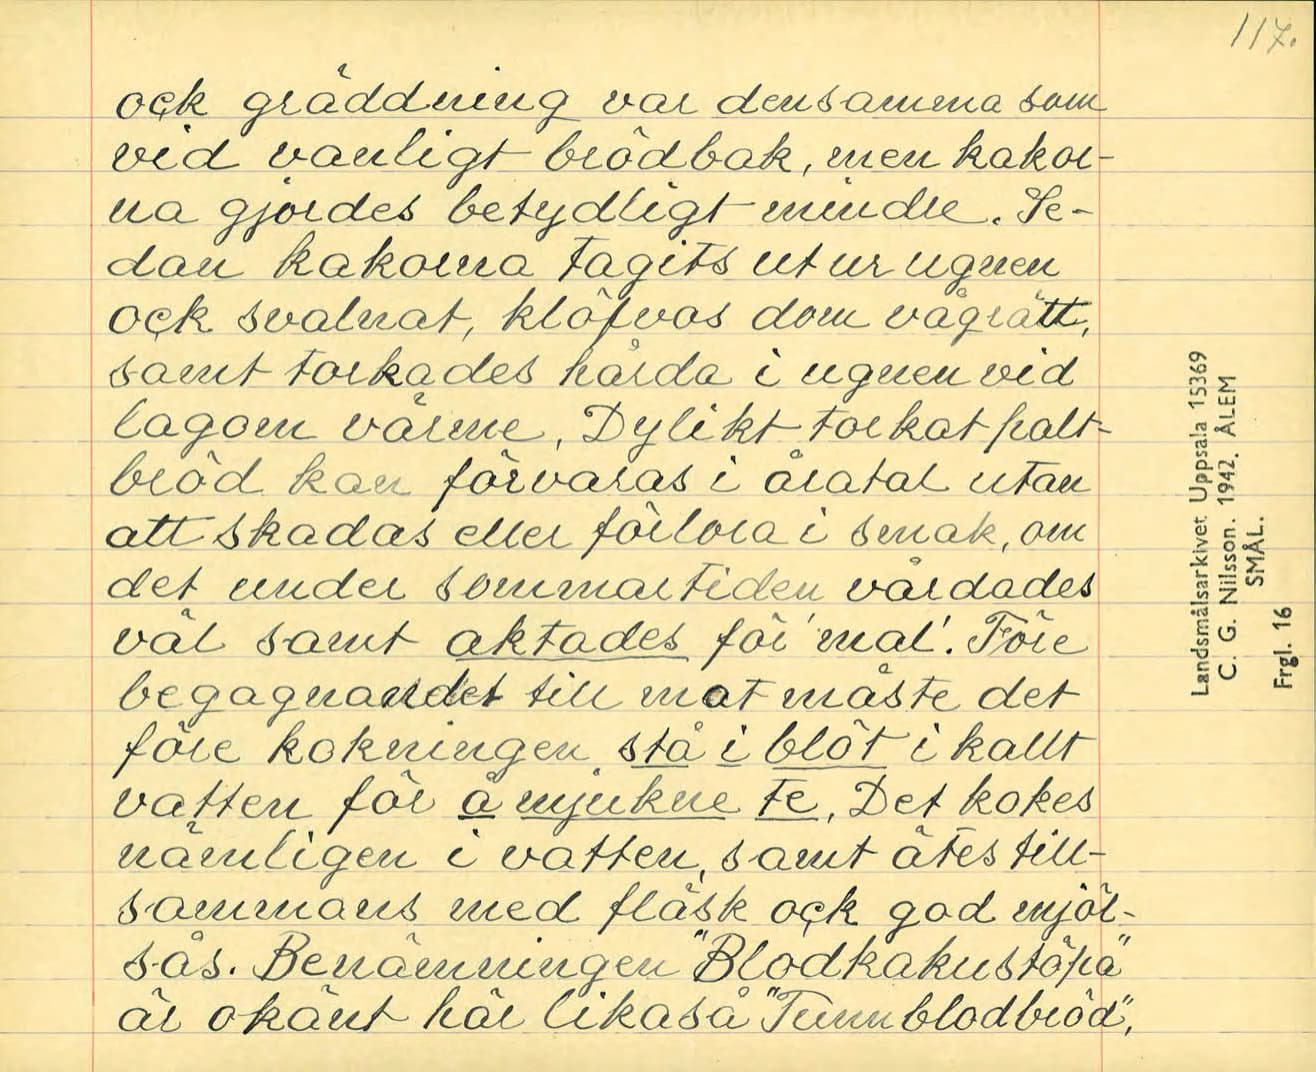 117.
oçk gräddning var densamma som
vid vanligt brödbak, men kakor-
na gjordes betydligt mindre. Se-
dan kakorna tagits ut ur ugnen
oçk svalnat, klöfvos dom vågrätt,
samt torkades hårda i ugnen vid
lagom värme, Dylikt torkat palt-
bröd kan förvaras i åratal utan
att skadas eller förlora i smak, om
det under sommartiden vårdades
väl samt aktades för 'mal'. Före
begagnandet till mat måste det
före kokningen stå i blöt i kallt
vatten för å mjukne te, Det kokes
nämligen i vatten, samt ätes till-
sammans med fläsk oçk god mjöl-
sås. Benämningen "Blodkakustöpa"
är okänt här likaså "Tunnblodbröd",
Landsmålsarkivet Uppsala 15369
C. G. Nilsson. 1942. ÅLEM
SMÅL.
Frgl. 16